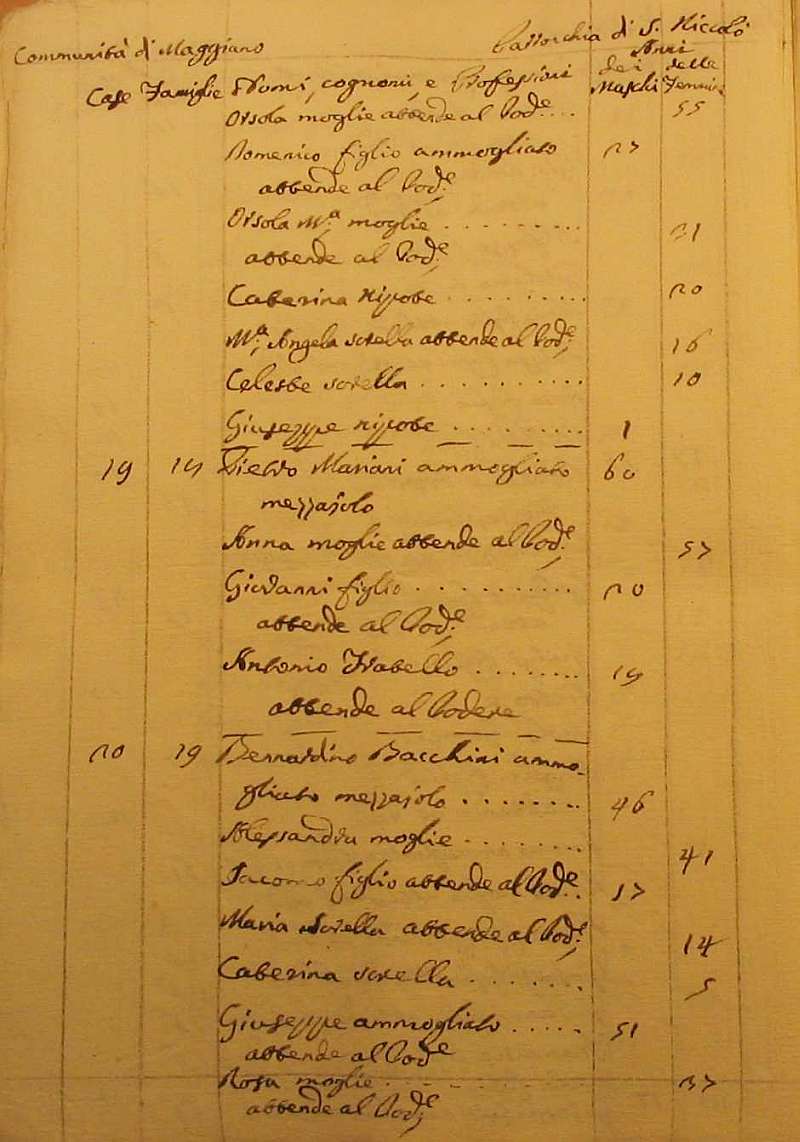 Communità di Maggiano Parrochia di S. Niccolò
Anni
dei delle
Case Famiglie Nomi, cognomi, e Professioni Maschi Femine
Orsola moglie attende al Pod.e ... 55
Domenico figlio ammogliato 27
attende al Pod.e
Orsola M.a moglie . . . . . . . . . 21
attende al Pod.e
Caterina nipote . . . . . . . . . 20
M.a Angela sorella attende al Pod.e 16
Celeste sorella . . . . . . . . . . 10
Giuseppe nipote . . . . . . . . . 1
19 Pietro Mariani ammogliato 60
mezzajolo
Anna moglie attende al Pod.e 57
Giovanni figlio . . . . . . . . . . 20
attende al Pod.e
Antonio Fratello . . . . . . . .
attende al Podere
20 19 Bernardino Bacchini ammo-
gliato mezzajolo . . . . . . . . 46
Alessandra moglie . . . . . . . . 41
Jacomo figlio attende al Pod.e . 17
Maria Sorella attende al Pod.e 14
Caterina sorella . . . . . . . . 5
Giuseppe ammogliato . . . . . 51
attende al Pod.e
Rosa moglie . . . . . . . . . 37
attende al Pod.e